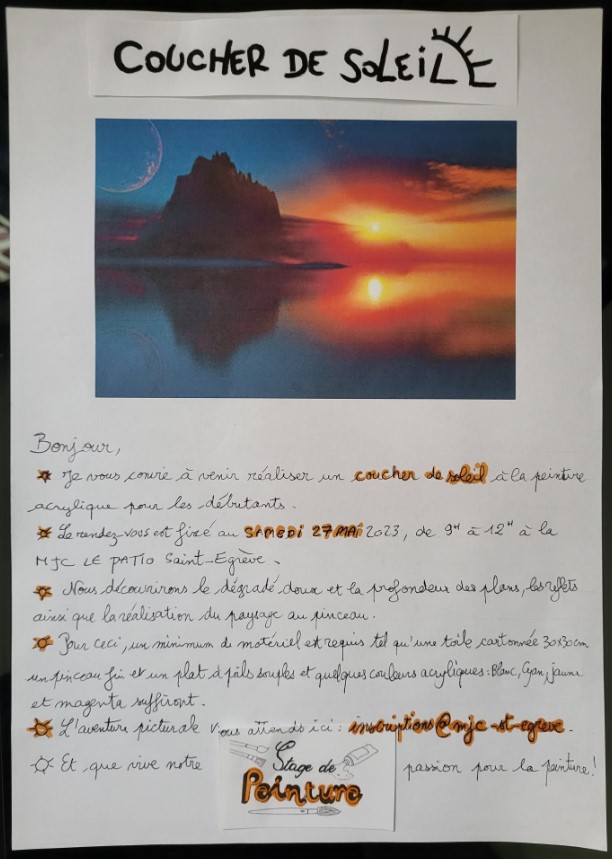 COUCHER DE SOLEIL
Bonjour,
Je vous convie à venir réaliser un coucher de soleil à la peinture
acrylique pour les débutants.
Le rendez-vous est fixé au SAMEDI 27 MAI 2023, de 9H à 12H à la
MJC LE PATIO Saint-Egrève.
Nous découvrirons le dégradé doux et la profondeur des plans, les reflets
ainsi que la réalisation du paysage au pinceau.
Pour ceci, un minimum de matériel est requis tel qu'une toile cartonnée 30x30cm
un pinceau fin et un plat à poils souples et quelques couleurs acryliques : Blanc, Cyan, jaune
et magenta suffiront.
L'aventure picturale vous attends ici : inscriptions@mjc-st-egreve.
Et, que vive notre passion pour la peinture !
Stage de
Peinture